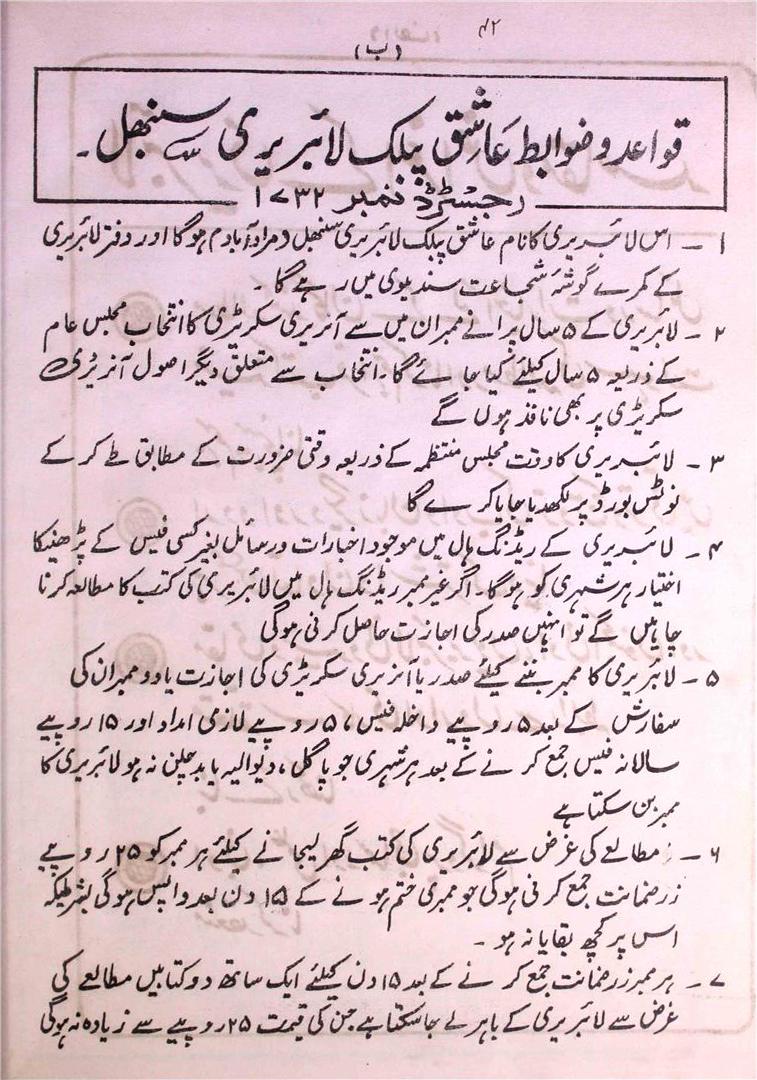 ۴۲
(ب)
قواعد و ضوابط عاشق پبلک لائبریری سنبھل۔
رجسٹرڈ نمبر ۱۷۳۲
۱ - اس لائبریری کا نام عاشق پبلک لائبریری سنبھل (مرادآباد) ہوگا اور دفتر لائبریری
کے کمرے گوشۂ شجاعت سندیلوی میں رہے گا ۔
۲ - لائبریری کے ۵ سال پرانے ممبران میں سے آنریری سکریٹری کا انتخاب مجلس عام
کے ذریعہ ۵ سال کیلئے کیا جائے گا۔ انتخاب سے متعلق دیگر اصول آنریری
سکریٹری پر بھی نافذ ہوں گے
۳ - لائبریری کا وقت مجلس منتظمہ کے ذریعہ وقتی ضرورت کے مطابق طے کر کے
نوٹس بورڈ پر لکھدیا جایا کرے گا
۴ - لائبریری کے ریڈنگ ہال میں موجود اخبارات و رسائل بغیر کسی فیس کے پڑھنیکا
اختیار ہر شہری کو ہوگا۔ اگر غیر ممبر ریڈنگ ہال میں لائبریری کی کتب کا مطالعہ کرنا
چاہیں گے تو انہیں صدر کی اجازت حاصل کرنی ہوگی
۵ - لائبریری کا ممبر بننے کیلئے صدر یا آنریری سکریٹری کی اجازت یا دو ممبران کی
سفارش کے بعد ۵ روپیے داخلہ فیس، ۵ روپیے لازمی امداد اور ۱۵ روپیے
سالانہ فیس جمع کرنے کے بعد ہر شہری جو پاگل، دیوالیہ یا بدچلن نہ ہو لائبریری کا
ممبر بن سکتا ہے
۶ - مطالعے کی غرض سے لائبریری کی کتب گھر لیجانے کیلئے ہر ممبر کو ۲۵ روپیے
زر ضمانت جمع کرنی ہوگی جو ممبری ختم ہونے کے ۱۵ دن بعد واپس ہوگی بشرطیکہ
اس پر کچھ بقایا نہ ہو ۔
۷ - ہر ممبر زر ضمانت جمع کرنے کے بعد ۱۵ دن کیلئے ایک ساتھ دو کتابیں مطالعے کی
غرض سے لائبریری کے باہر لے جا سکتا ہے جن کی قیمت ۲۵ روپیے سے زیادہ نہ ہوگی